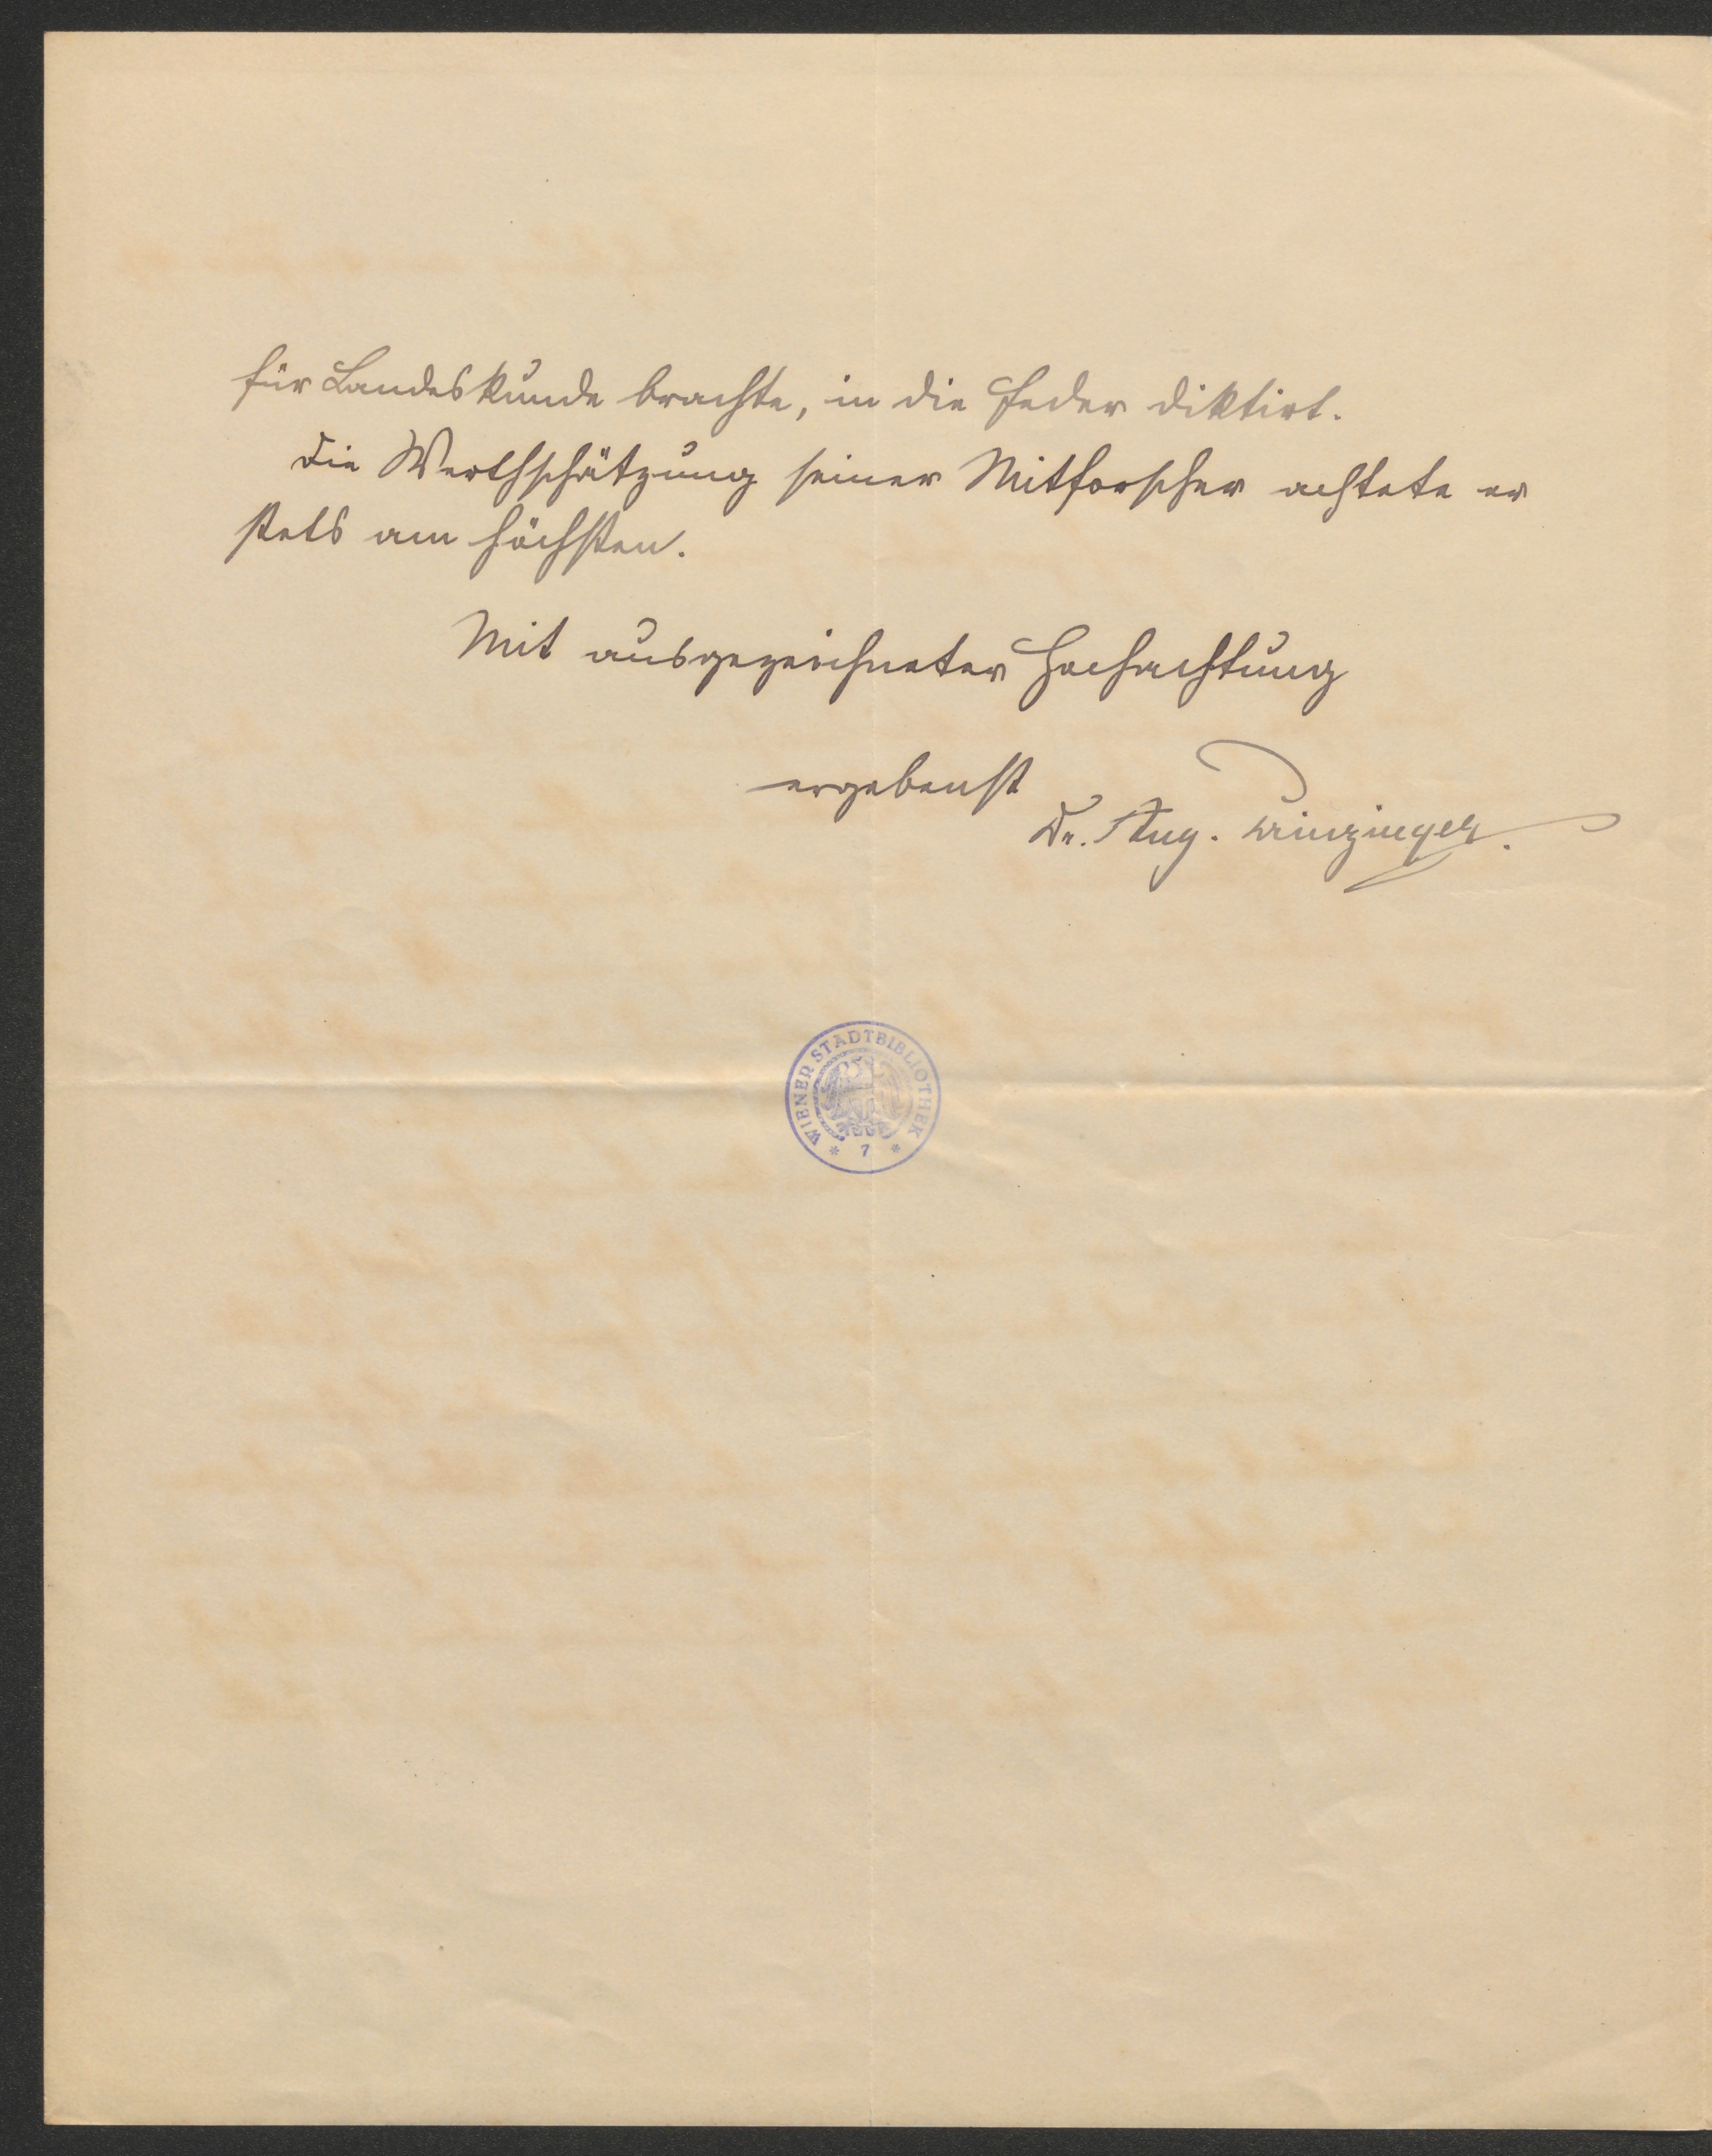 für Landeskunde brachte, in die Feder diktirt.
Die Werthschätzung seiner Mitforscher achtete er
stets am höchsten.
Mit ausgezeichneter Hochachtung
ergebenst
Dr. Aug. Prinzinger.
WIENER STADTBIBLIOTHEK
* 7 *